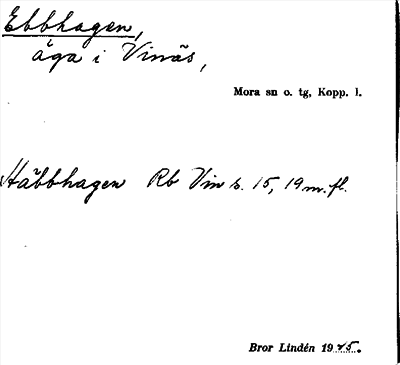 Ebbhagen,
äga i Vinäs,
Mora sn o. tg, Kopp. l.
Häbbhagen Rb Vin s. 15, 19 m. fl.
Bror Lindén 1925.